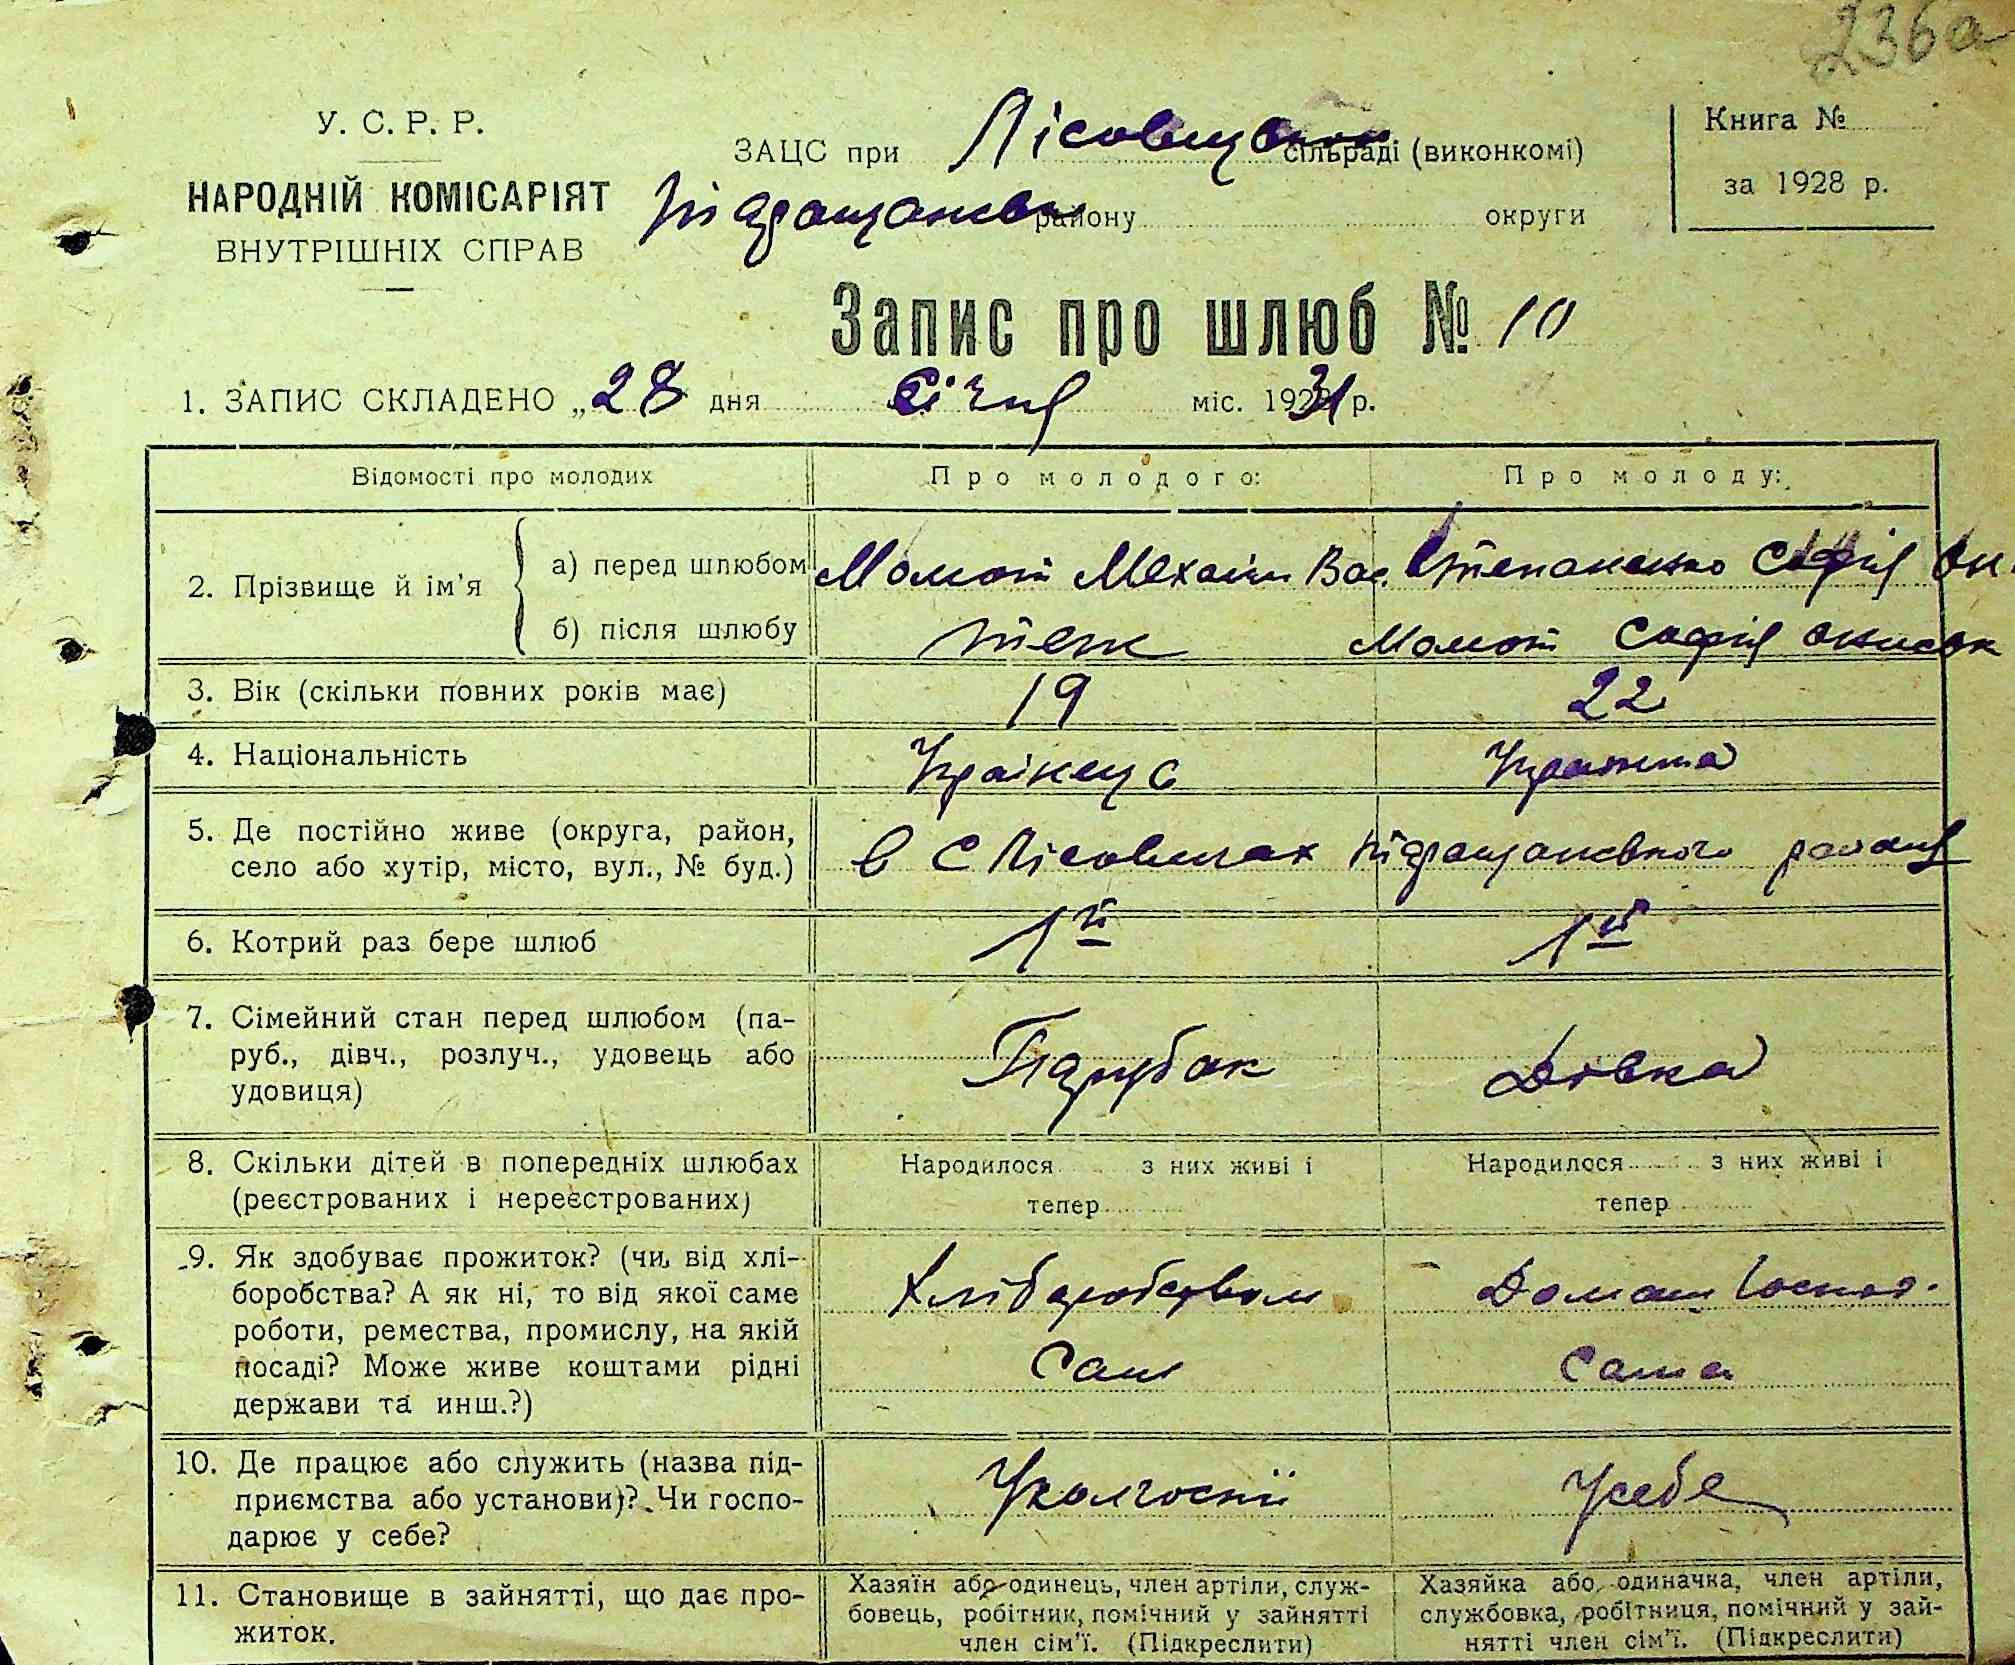 236а
У. С. Р. Р.
НАРОДНІЙ КОМІСАРІЯТ
ВНУТРІШНІХ СПРАВ
ЗАЦС при сільраді (виконкомі)
району округи
Книга №
за 1928 р.
Запис про шлюб № 10
1. ЗАПИС СКЛАДЕНО „28 дня Січня міс. 1931 р.
Відомості про молодих Про молодого: Про молоду:
2. Прізвище й ім'я
а) перед шлюбом Момот Механи Вас. Степаненко Софія Он.
б) після шлюбу теж Момот Софія
3. Вік (скільки повних років має) 19 22
4. Національність Украінець Украінка
5. Де постійно живе (округа, район,
село або хутір, місто, вул., № буд.) в с Лісовичах району
6. Котрий раз бере шлюб 1й 1й
7. Сімейний стан перед шлюбом (па-
руб., дівч., розлуч., удовець або
удовиця)
Парубак Дівка
8. Скільки дітей в попередніх шлюбах
(реєстрованих і нереєстрованих)
Народилося з них живі і
тепер
Народилося з них живі і
тепер
9. Як здобуває прожиток? (чи від хлі-
боробства? А як ні, то від якої саме
роботи, ремества, промислу, на якій
посаді? Може живе коштами рідні
держави та инш.?)
Хліборобством
Сам
Домаш Господ.
Сама
10. Де працює або служить (назва під-
приємства або установи)? Чи госпо-
дарює у себе?
У колгоспі У себе
11. Становище в зайнятті, що дає про-
житок.
Хазяїн або одинець, член артіли, служ-
бовець, робітник, помічний у зайнятті
член сім'ї. (Підкреслити)
Хазяйка або одиначка, член артіли,
службовка, робітниця, помічний у зай-
нятті член сім'ї. (Підкреслити)